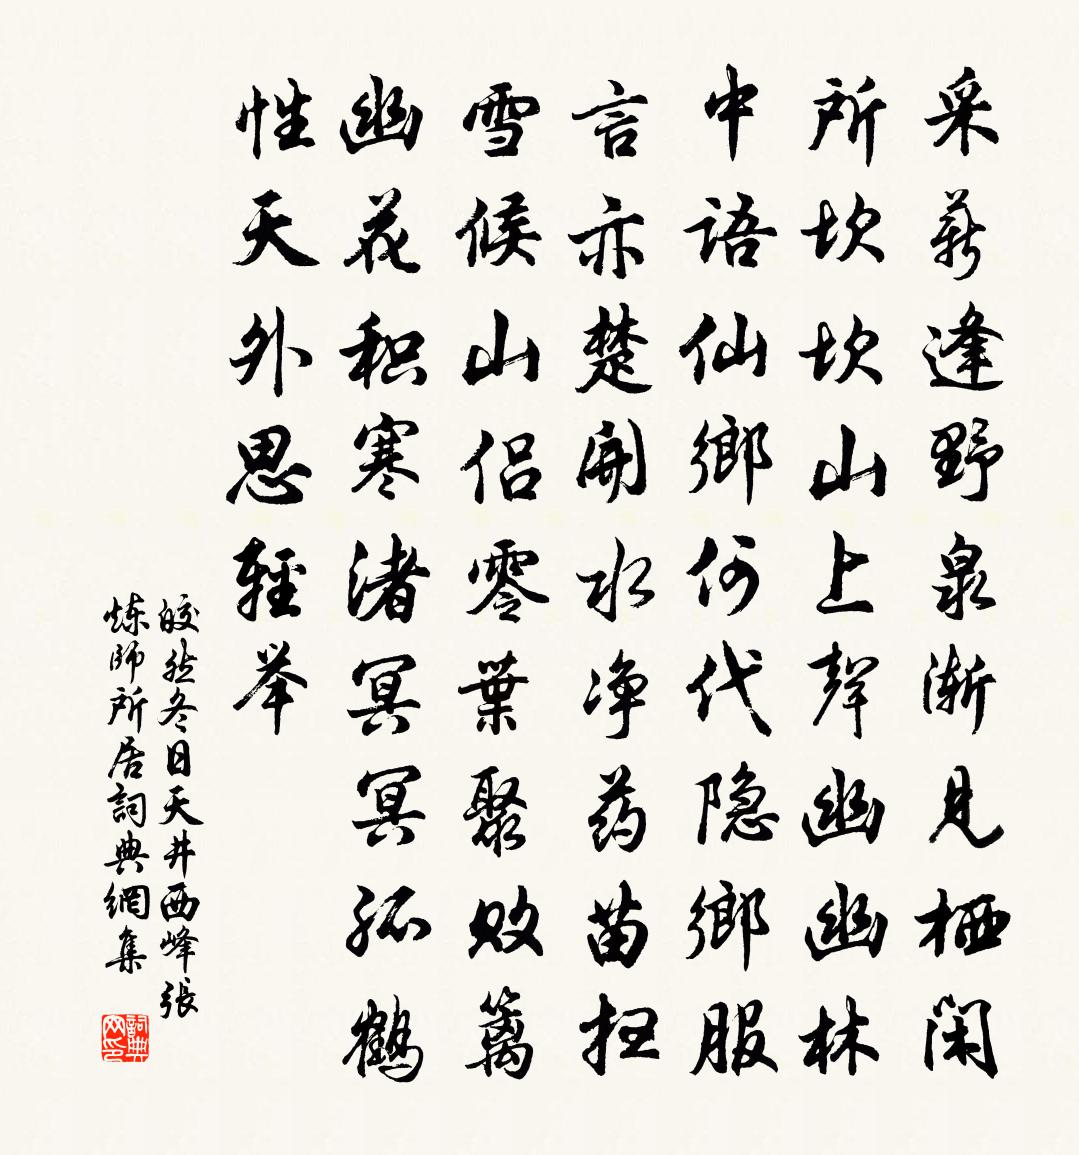 采薪逢野泉渐见栖闲
所坎坎山上聲幽幽林
中語仙鄉何代隐鄉服
言亦楚開水净药苗扫
雪候山侣零葉聚败篱
幽花积寒渚冥冥孤鹤
性天外思輕举
皎然冬日天井西峰張
炼師所居詞典網集
詞典